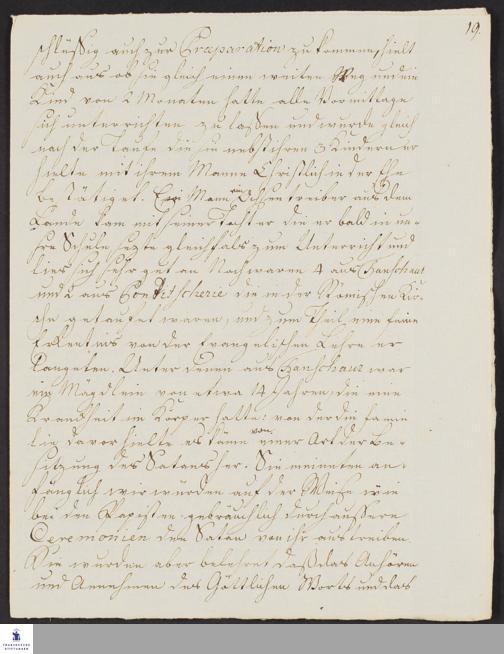 19.
schlüssig auch zur Præparation zu kommen, hielt
auch aus ob sie gleich einen weiten Weg und ein
Kind von 2 Monaten hatte alle Vormittage
sich unterrichten zu laßen und wurde gleich
nach der Taufe die sie nebst ihren 3 Kindern er
hielte mit ihrem Manne Christlich in der Ehe
bestätiget. Ein Mann ein Ochsentreiber aus dem
Lande kam mit seiner Tochter die er bald in un-
sre Schule sezte gleichfals zum Unterricht und
lies sich sehr gut an Noch waren 4 aus Tanschaur
und 2 aus Ponditscherie die in der Römischen Kir-
che getaufet waren, und zum Theil eine feine
Erkentnis von der Evangelischen Lehre er
langeten. Unter denen aus Tanschaur war
ein Mägdlein von etwa 14 Jahren, die eine
Kranckheit im Körper hatte: von der die Fami
lie davor hielte es käme von einer Art der Be-
sitzung des Satans her. Sie meineten an-
fänglich wir würden auf der Weise wie
bei den Papisten gebräuchlich durch äussere
Ceremonien den Satan von ihr austreiben.
Sie wurden aber belehret daß das Anhören
und Annehmen des Göttlichen Worts und das
FRANCKESCHE
STIFTUNGEN